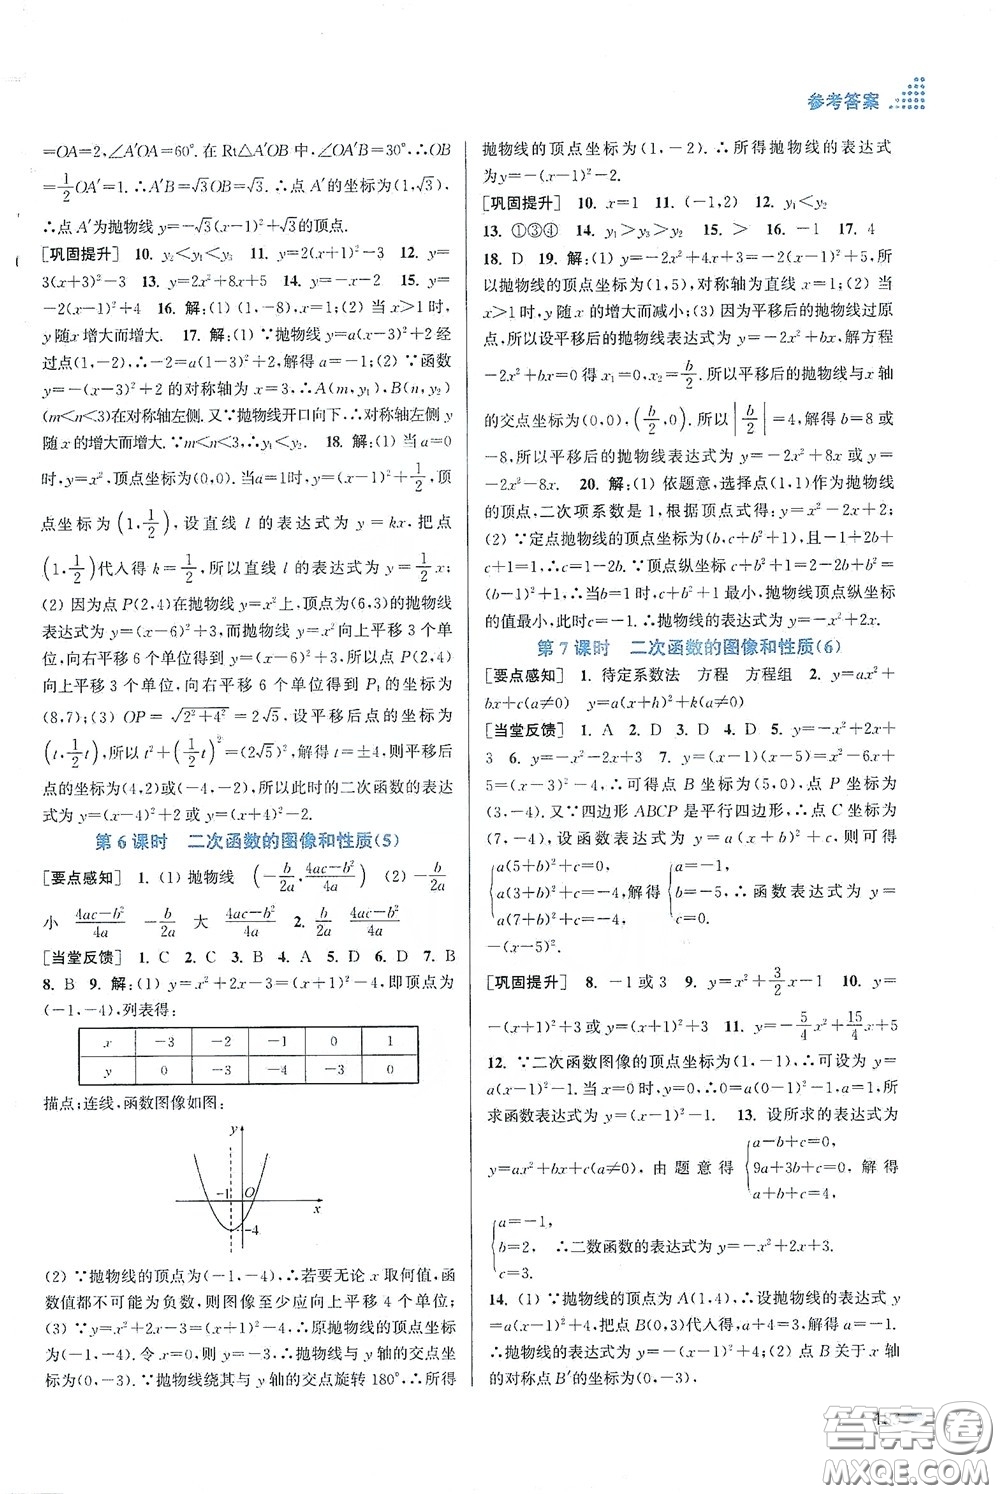 参考答案
=OA=2,∠A′OA=60°.在Rt△A′OB中,∠OA′B=30°,∴OB
=1/2OA′=1.∴A′B=√3OB=√3.∴点A′的坐标为(1,√3),
∴点A′为抛物线y=-√3(x-1)²+√3的顶点.
[巩固提升] 10. y₂<y₁<y₃ 11. y=2(x+1)²-3 12. y=
3(x+3)²-3 13. y=2x²+8x+5 14. y=-x-2 15. y=
-2(x-1)²+4 16. 解:(1) (1,-8),x=1;(2) 当x>1时,
y随x增大而增大. 17. 解:(1) ∵抛物线y=a(x-3)²+2经
过点(1,-2),∴-2=a(1-3)²+2,解得a=-1;(2) ∵函数
y=-(x-3)²+2的对称轴为x=3,∴A(m,y₁),B(n,y₂)
(m<n<3)在对称轴左侧.又∵抛物线开口向下,∴对称轴左侧y
随x的增大而增大.∵m<n<3,∴y₁<y₂. 18. 解:(1) 当a=0
时,y=x²,顶点坐标为(0,0).当a=1时,y=(x-1)²+1/2,顶
点坐标为(1,1/2),设直线l的表达式为y=kx,把点
(1,1/2)代入得k=1/2,所以直线l的表达式为y=1/2x;
(2) 因为点P(2,4)在抛物线y=x²上,顶点为(6,3)的抛物线
表达式为y=(x-6)²+3,而抛物线y=x²向上平移3个单
位,向右平移6个单位得到y=(x-6)²+3,所以点P(2,4)
向上平移3个单位,向右平移6个单位得到P₁的坐标为
(8,7);(3) OP=√(2²+4²)=2√5,设平移后点的坐标为
(t,1/2t),所以t²+(1/2t)²=(2√5)²,解得t=±4,则平移后
点的坐标为(4,2)或(-4,-2),所以此时的二次函数的表达
式为y=(x-4)²+2或y=(x+4)²-2.
第6课时 二次函数的图像和性质(5)
[要点感知] 1. (1) 抛物线 (-b/2a,(4ac-b²)/4a) (2) -b/2a
小 (4ac-b²)/4a -b/2a 大 (4ac-b²)/4a 2. b/2a (4ac-b²)/4a
[当堂反馈] 1. C 2. C 3. B 4. A 5. D 6. D 7. B
8. B 9. 解:(1) y=x²+2x-3=(x+1)²-4,即顶点为
(-1,-4),列表得:
x -3 -2 -1 0 1
y 0 -3 -4 -3 0
描点;连线,函数图像如图:
y
-1 O
x
-4
(2) ∵抛物线的顶点为(-1,-4),∴若要无论x取何值,函
数值都不可能为负数,则图像至少应向上平移4个单位;
(3) ∵y=x²+2x-3=(x+1)²-4,∴原抛物线的顶点坐标
为(-1,-4).令x=0,则y=-3,∴抛物线与y轴的交点坐
标为(0,-3).∵抛物线绕其与y轴的交点旋转180°,∴所得
抛物线的顶点坐标为(1,-2).∴所得抛物线的表达式
为y=-(x-1)²-2.
[巩固提升] 10. x=1 11. (-1,2) 12. y₁<y₂
13. ①③④ 14. y₁>y₃>y₂ 15. > 16. -1 17. 4
18. D 19. 解:(1) y=-2x²+4x+3=-2(x-1)²+5,所
以抛物线的顶点坐标为(1,5),对称轴为直线x=1;(2) 当
x>1时,y随x的增大而减小;(3) 因为平移后的抛物线过原
点,所以设平移后的抛物线表达式为y=-2x²+bx,解方程
-2x²+bx=0得x₁=0,x₂=b/2.所以平移后的抛物线与x轴
的交点坐标为(0,0),(b/2,0).所以|b/2|=4,解得b=8或
-8,所以平移后的抛物线表达式为y=-2x²+8x或y=
-2x²-8x. 20. 解:(1) 依题意,选择点(1,1)作为抛物线
的顶点,二次项系数是1,根据顶点式得:y=x²-2x+2;
(2) ∵定点抛物线的顶点坐标为(b,c+b²+1),且-1+2b+
c+1=1,∴c=1-2b.∵顶点纵坐标c+b²+1=2-2b+b²=
(b-1)²+1,∴当b=1时,c+b²+1最小,抛物线顶点纵坐标
的值最小,此时c=-1.∴抛物线的表达式为y=-x²+2x.
第7课时 二次函数的图像和性质(6)
[要点感知] 1. 待定系数法 方程 方程组 2. y=ax²+
bx+c(a≠0) y=a(x+h)²+k(a≠0)
[当堂反馈] 1. A 2. D 3. D 4. D 5. y=-x²+2x+
3 6. y=-x²-2x+3 7. y=-(x-5)² ∵y=x²-6x+
5=(x-3)²-4,∴可得点B坐标为(5,0),点P坐标为
(3,-4).又∵四边形ABCP是平行四边形,∴点C坐标为
(7,-4),设函数表达式为y=a(x+b)²+c,则可得
{a(5+b)²+c=0, a(3+b)²+c=-4, a(7+b)²+c=-4, 解得{a=-1, b=-5, c=0. ∴函数表达式为y=
-(x-5)².
[巩固提升] 8. -1或3 9. y=1/2x²+3/2x-1 10. y=
-(x+1)²+3或y=-(x-1)²+3 11. y=-5/4x²+15/4x+5
12. ∵二次函数图像的顶点坐标为(1,-1),∴可设为y=
a(x-1)²-1.当x=0时,y=0,∴0=a(0-1)²-1,a=1,所
求函数表达式为y=(x-1)²-1. 13. 设所求的表达式为
y=ax²+bx+c(a≠0),由题意得{a-b+c=0, 9a+3b+c=0, a+b+c=4, 解得
{a=-1, b=2, c=3. ∴二数函数的表达式为y=-x²+2x+3.
14. (1) ∵抛物线的顶点为A(1,4),∴设抛物线的表达式
y=a(x-1)²+4,把点B(0,3)代入得,a+4=3,解得a=-1.
∴抛物线的表达式为y=-(x-1)²+4;(2) 点B关于x轴
的对称点B′的坐标为(0,-3).
答案卷
MXQE.COM